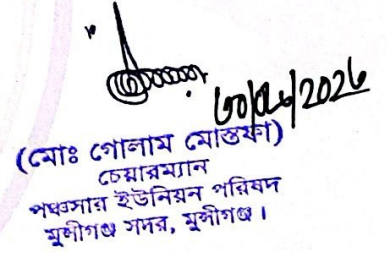 (মোঃ গোলাম মোস্তফা)
চেয়ারম্যান
পঞ্চসার ইউনিয়ন পরিষদ
মুন্সীগঞ্জ সদর, মুন্সীগঞ্জ।